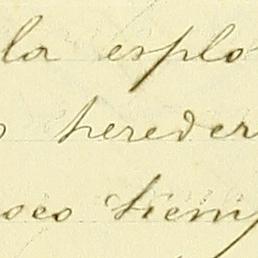 la esplo
o hereder
poco tiemp